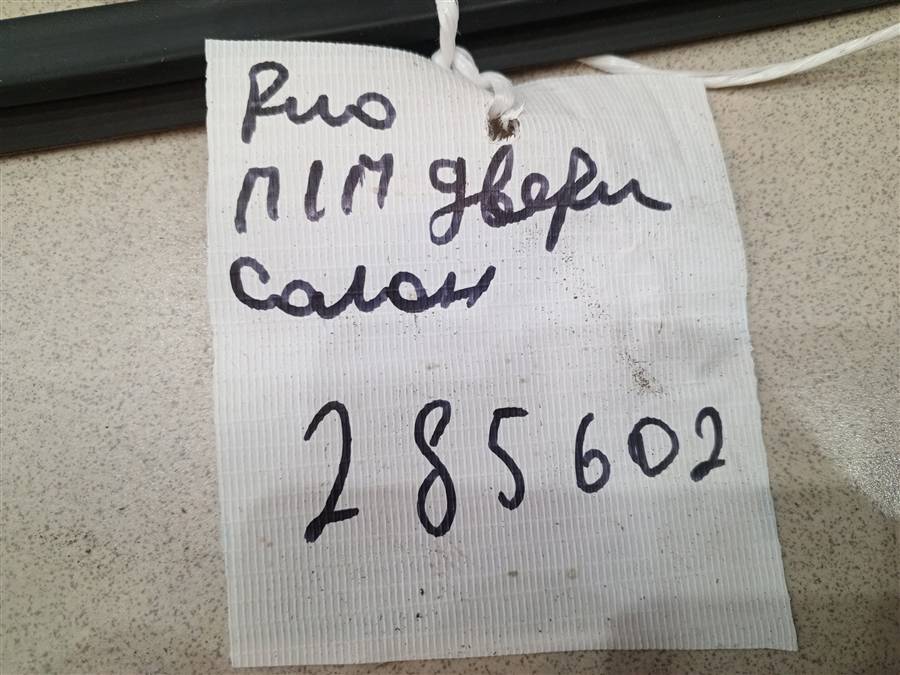 Рио
П/П двери
салон
285602